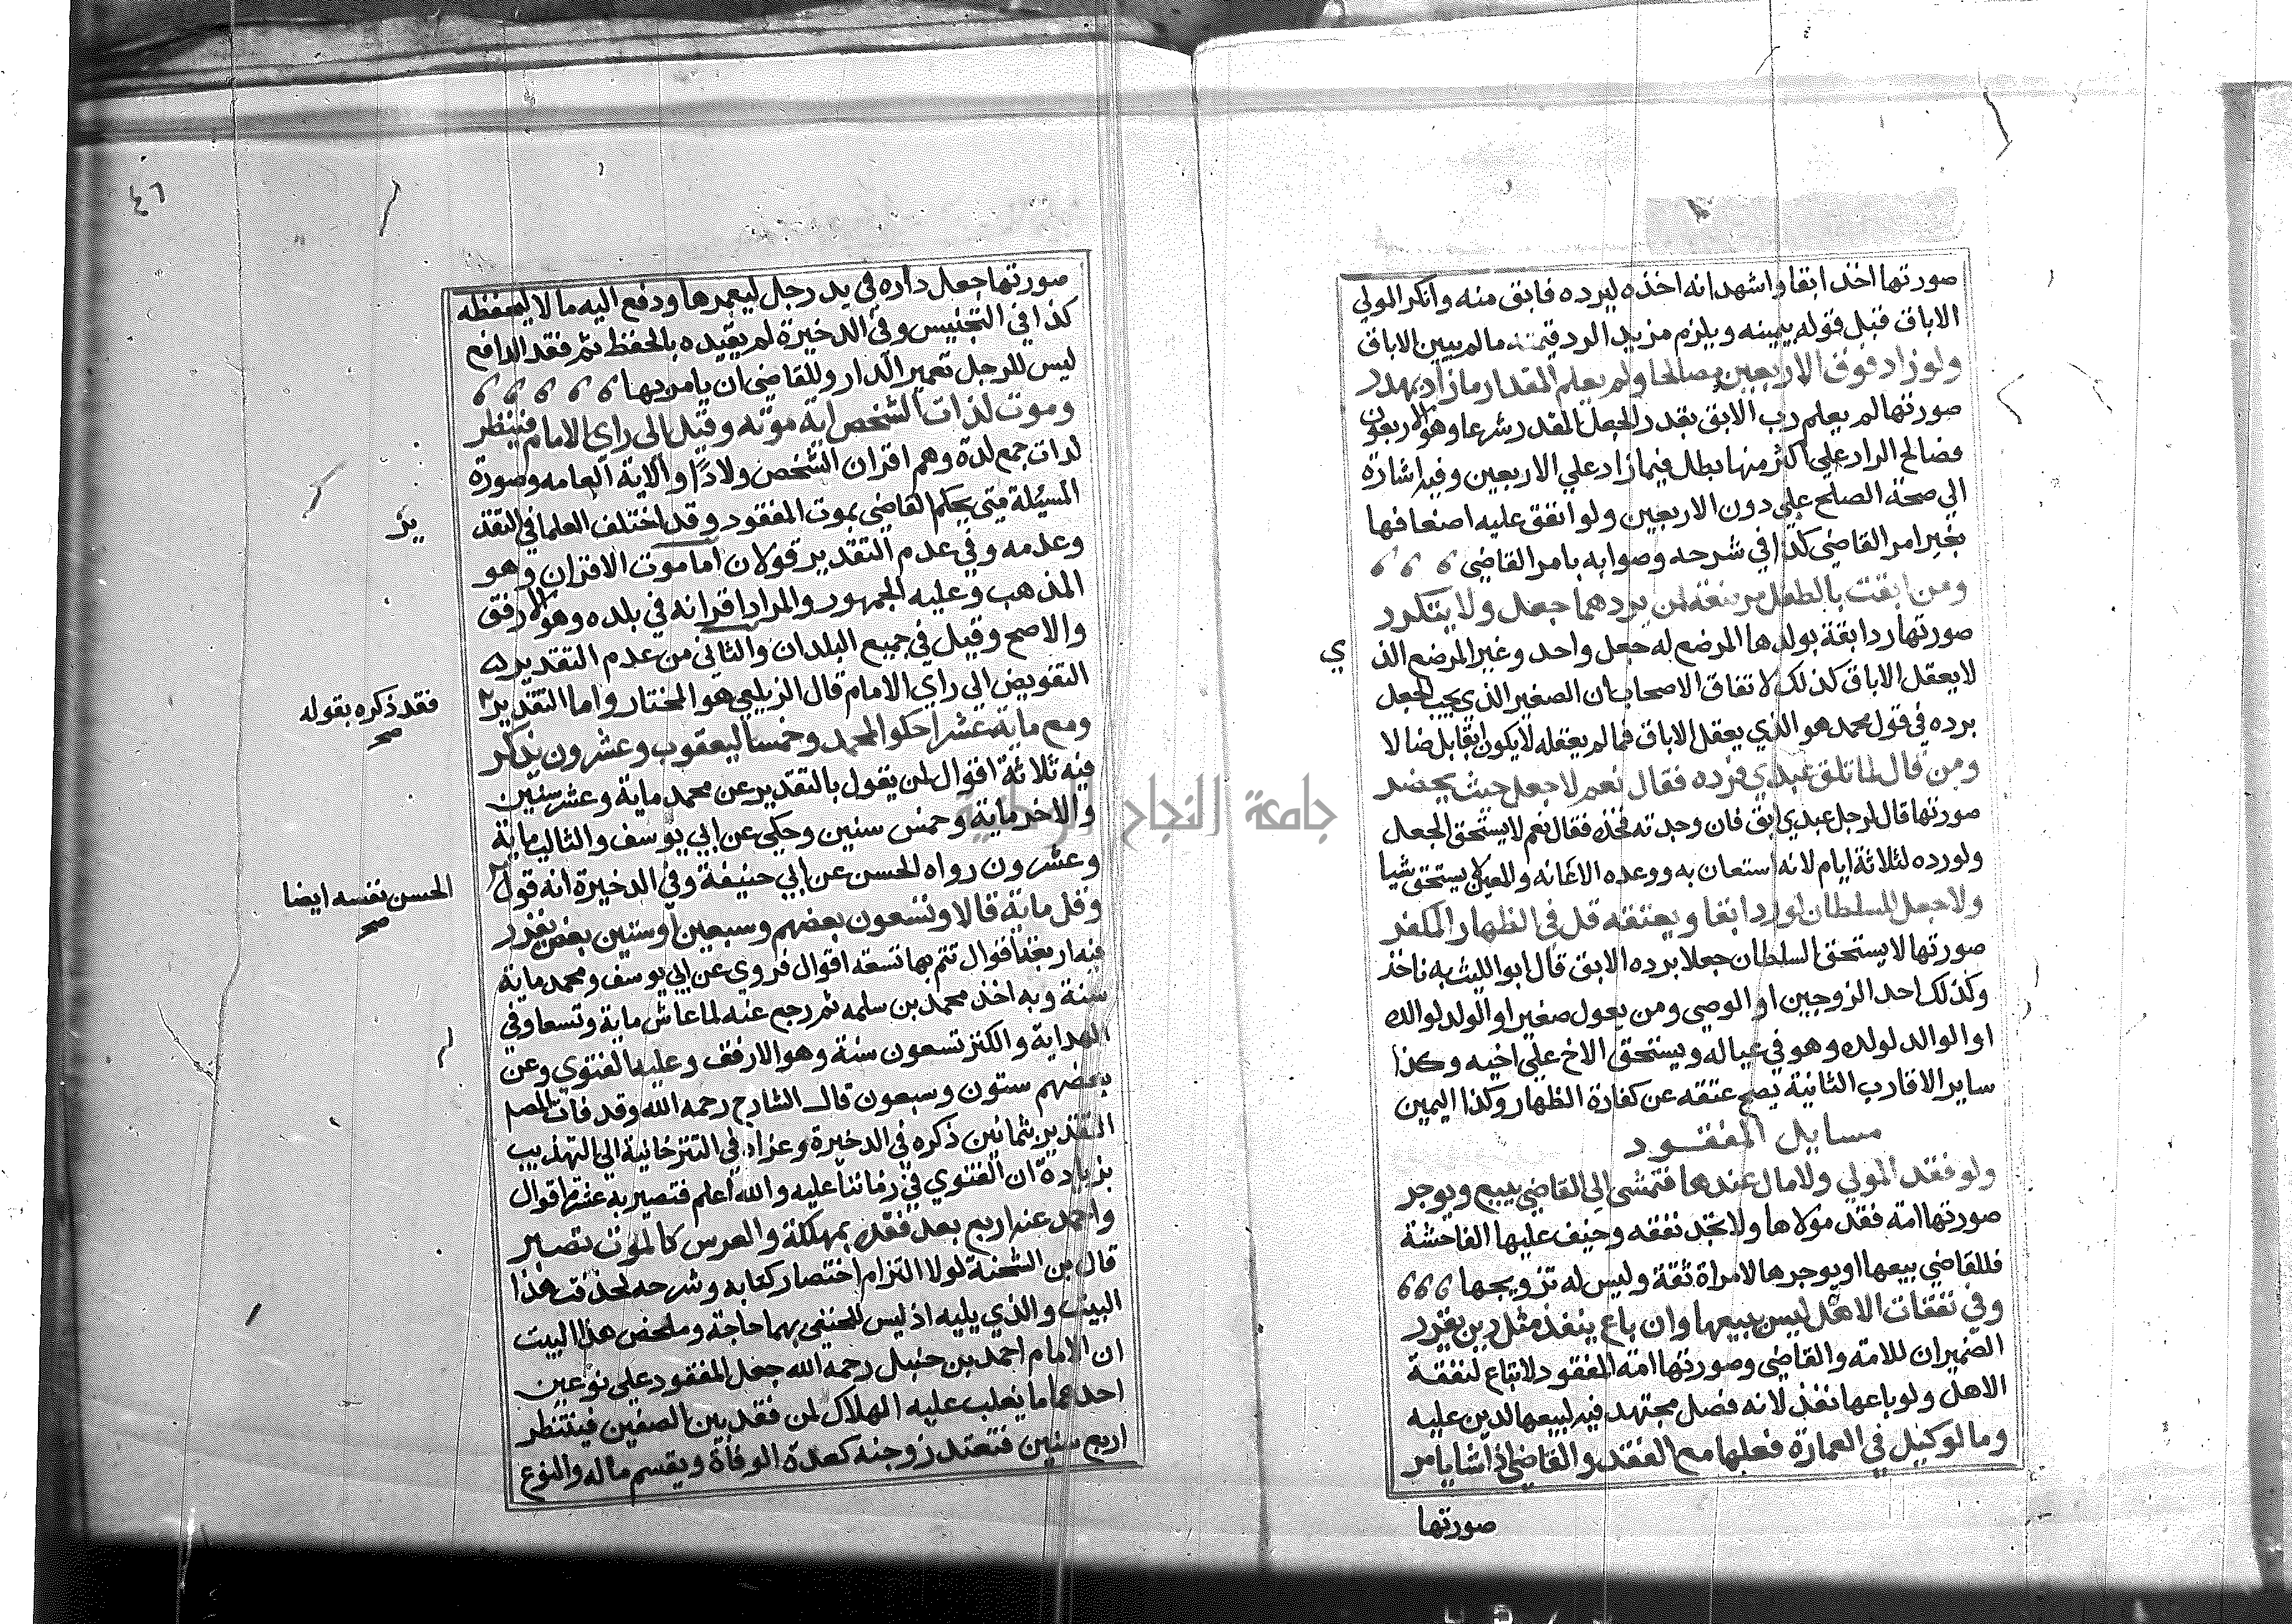 صورتها اخذ ابقا واشهد انه اخذه ليرده فابق منه وانكر المولي
الاباق قبل قوله بيمينه ويلزم مريد الرد قيمته مالم يبين الاباق
ولو زاد فوق الاربعين مصالحا ولم يعلم المقدار مازاد يهدر
صورتها لم يعلم رب الابق بقدر الجعل المقدر شرعا وهو الاربعون
فصالح الراد علي اكثر منها بطل فيما زاد علي الاربعين وفيه اشارة
الي صحة الصلح علي دون الاربعين ولو انفق عليه اضعافها
بغير امر القاضي كذا في شرحه وصوابه بامر القاضي
ومن ابقت بالطفل مرضعة لمن يردهما جعل ولا يتكرر
صورتها رد ابقة بولدها المرضع له جعل واحد وغير المرضع الذ
ي
لا يعقل الاباق كذلك لاتفاق الاصحاب ان الصغير الذي يجب الجعل
برده في قول محمد هو الذي يعقل الاباق فمالم يعقله لا يكون ابقا بل ضالا
ومن قال لما تلق عبدي فرده فقال نعم لا جعل حيث يحضر
صورتها قال لرجل عبدي ابق فان وجدته فخذه فقال نعم لا يستحق الجعل
ولو رده لثلاثة ايام لانه استعان به ووعده الاغانه والمعين لا يستحق شيا
ولا جعل للسلطان لو رد ابقا ويعتقه قل في الظهار المكفر
صورتها لا يستحق السلطان جعلا برده الابق قال ابو الليث به ناخذ
وكذلك احد الزوجين او الوصي ومن يعول صغيرا والولد لوالد
او الوالد لولده وهو في عياله ويستحق الاخ علي اخيه وكذا
ساير الاقارب الثانية يصح عتقه عن كفارة الظهار وكذا اليمين
مسايل المفقود
ولو فقد المولي ولا مال عندها فتمشي الي القاضي يبيع ويوجر
صورتها امة فقد مولاها ولا تجد نفقه وخيف عليها الفاحشة
فللقاضي بيعها او يوجرها لامراة ثقة وليس له تزويجها
وفي نفقات الاهل ليس يبيعها وان باع ينفذ مثل دين يقرر
الضميران للامة والقاضي وصورتها امة المفقود لاتباع لنفقة
الاهل ولو باعها نفذ لانه فصل مجتهد فيه لبيعها لدين عليه
وما لوكيل في العمارة فعلها مع الفقد والقاضي اذا شا يامر
صورتها
٤٦
صورتها جعل داره في يد رجل ليعمرها ودفع اليه مالا ليحفظه
كذا في التجنيس وفي الذخيرة لم يقيده بالحفظ ثم فقد الدافع
ليس للرجل تعمير الدار وللقاضي ان يامر بها
وموت لذات الشخص اية موته وقيل الي راي الامام فينظر
لدات جمع لدة وهم اقران الشخص ولادا والاية العامه وصورة
المسيلة متي يحكم القاضي بموت المفقود وقد اختلف العلما في التقد
ير
وعدمه وفي عدم التقدير قولان اما موت الاقران وهو
المذهب وعليه الجمهور والمراد اقرانه في بلده وهو الارفق
والاصح وقيل في جميع البلدان والثاني من عدم التقدير
التفويض الي راي الامام قال الزيلعي هو المختار واما التقدير
فقد ذكره بقوله
صح
ومع ماية عشرا حكوا لمحمد وخمسا ليعقوب وعشرون يذكر
فيه ثلاثة اقوال لمن يقول بالتقدير عن محمد ماية وعشر سنين
والاخر ماية وخمس سنين وحكي عن ابي يوسف والثالث ماية
وعشرون رواه الحسن عن ابي حنيفة وفي الذخيرة انه قول
الحسن نفسه ايضا
صح
وقل ماية قالا وتسعون بعضهم وسبعين او ستين بعض يقرر
فيه اربعة اقوال تتم بها تسعة اقوال فروي عن ابي يوسف ومحمد ماية
سنة وبه اخذ محمد بن سلمه ثم رجع عنه لما عاش ماية وتسعا وفي
الهداية والكنز تسعون سنة وهو الارفق وعليه الفتوي وعن
بعضهم ستون وسبعون قال الشارح رحمه الله وقد فات المص
التقدير بثمانين ذكره في الذخيرة وعزاه في التترخانية الي التهذيب
بزيادة ان الفتوي في زماننا عليه والله اعلم فتصير به عشرة اقوال
واحمد عنه اربع بعد فقده بمهلكة والعرس كالموت تصبر
قال بن الشحنة لولا التزام اختصار كتابه وشرحه لحذفت هذا
البيت والذي يليه اذ ليس للحنفي بهما حاجة وملخص هذا البيت
ان الامام احمد بن حنبل رحمه الله جعل المفقود علي نوعين
احدهما ما يغلب عليه الهلاك لمن فقد بين الصفين فينتظر
اربع سنين فتعتد زوجته كعدة الوفاة ويقسم ماله والنوع
جامعة النجاح الوطنية